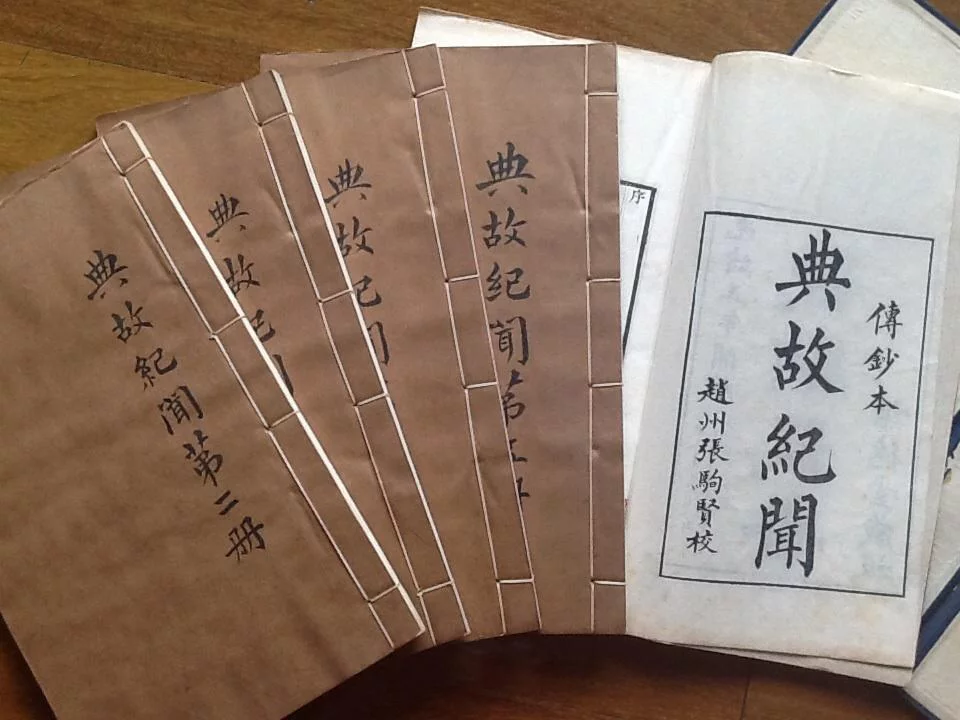 傳鈔本
典故紀聞
趙州張駒賢校
序
典故紀聞苐
典故紀聞
典故紀聞
典故紀聞苐二册